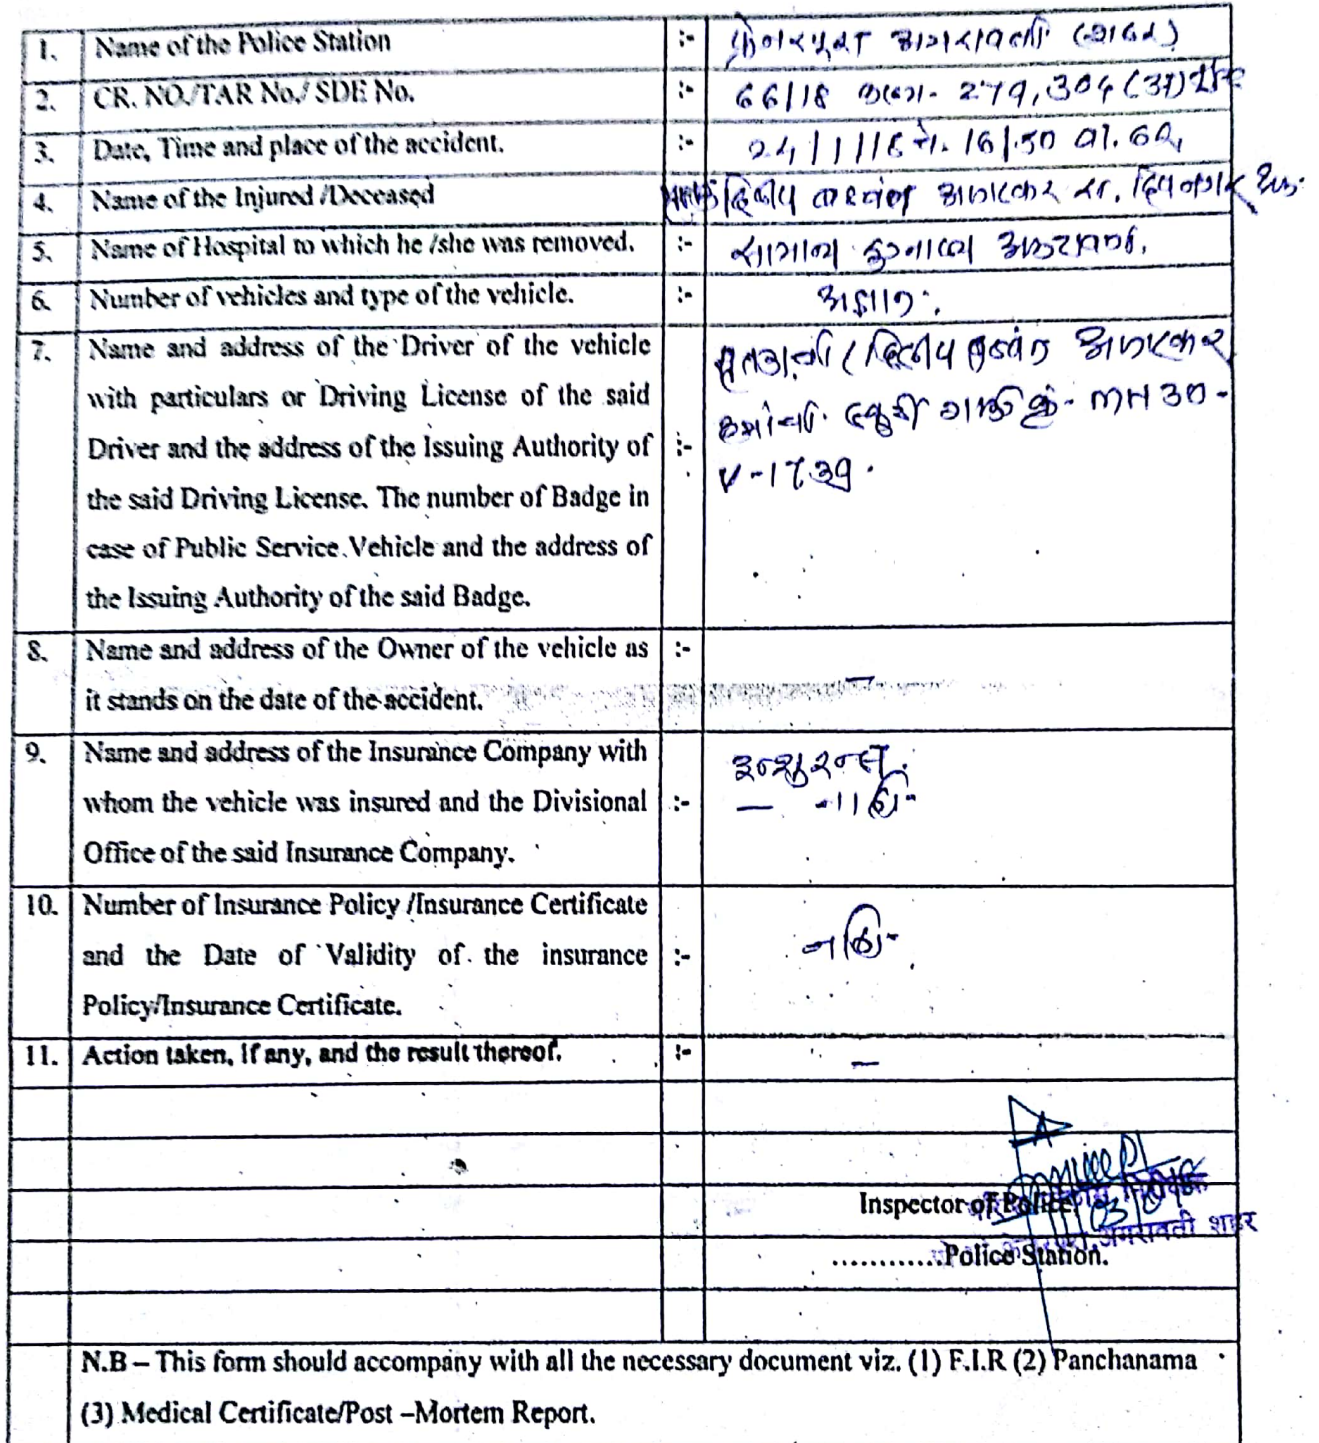 1. Name of the Police Station :- फ्रेजरपुरा अमरावती (शहर)
2. CR. NO./TAR No./ SDE No. :- 66/18 कलम- 279, 304 (अ)
3. Date, Time and place of the accident. :- 24/1/18 चे. 16/50 वा.
4. Name of the Injured /Deceased दिलीप
5. Name of Hospital to which he /she was removed. :- सामान्य
6. Number of vehicles and type of the vehicle. :- अज्ञात.
7. Name and address of the Driver of the vehicle
with particulars or Driving License of the said
Driver and the address of the Issuing Authority of :-
the said Driving License. The number of Badge in
case of Public Service Vehicle and the address of
the Issuing Authority of the said Badge.
दिलीप
गाडी क्रं- MH 30-
V-1739.
8. Name and address of the Owner of the vehicle as :-
it stands on the date of the accident. —
9. Name and address of the Insurance Company with इन्शुरन्स.
whom the vehicle was insured and the Divisional :- — नाही-
Office of the said Insurance Company.
10. Number of Insurance Policy /Insurance Certificate
and the Date of Validity of the insurance :- नाही-
Policy/Insurance Certificate.
11. Action taken, if any, and the result thereof. :- —
Inspector of Police,
अमरावती शहर
............Police Station.
N.B – This form should accompany with all the necessary document viz. (1) F.I.R (2) Panchanama
(3) Medical Certificate/Post –Mortem Report.